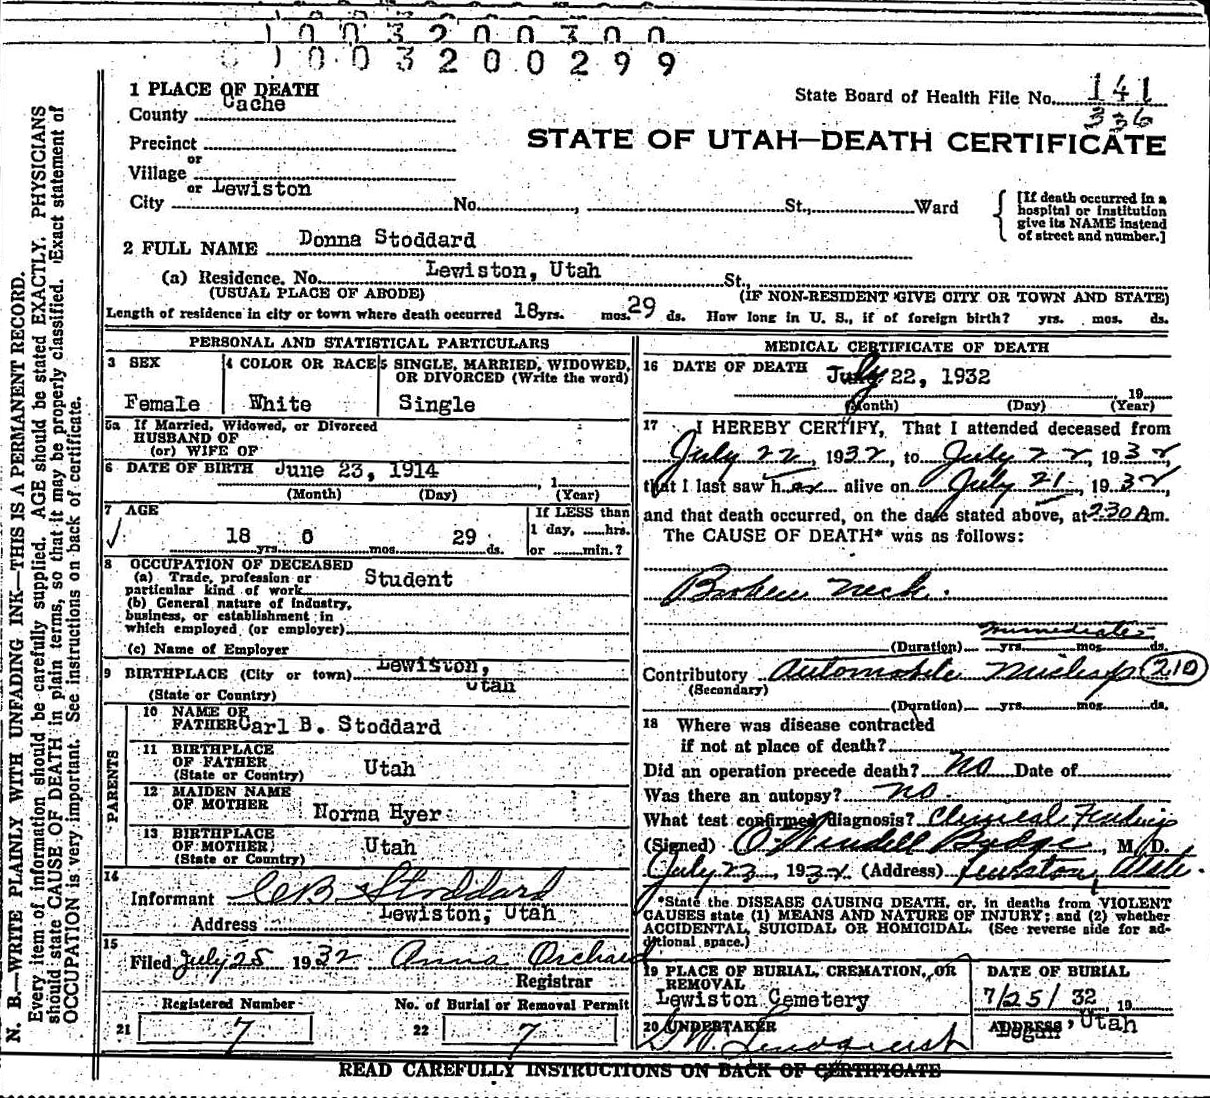 1 0 0 3 2 0 0 3 0 0
0 1 0 0 3 2 0 0 2 9 9
1 PLACE OF DEATH
County Cache
State Board of Health File No. 141
336
STATE OF UTAH—DEATH CERTIFICATE
Precinct
or
Village
or Lewiston
City No. , St., Ward
[If death occurred in a hospital or institution give its NAME instead of street and number.]
2 FULL NAME Donna Stoddard
(a) Residence, No. Lewiston, Utah St.,
(USUAL PLACE OF ABODE) (IF NON-RESIDENT GIVE CITY OR TOWN AND STATE)
Length of residence in city or town where death occurred 18 yrs. mos. 29 ds. How long in U. S., if of foreign birth? yrs. mos. ds.
PERSONAL AND STATISTICAL PARTICULARS
3 SEX
Female
4 COLOR OR RACE
White
5 SINGLE, MARRIED, WIDOWED, OR DIVORCED (Write the word)
Single
5a If Married, Widowed, or Divorced
HUSBAND OF
(or) WIFE OF
6 DATE OF BIRTH June 23, 1914 , 1
(Month) (Day) (Year)
7 AGE
If LESS than
1 day, hrs.
or min.?
18 yrs. 0 mos. 29 ds.
8 OCCUPATION OF DECEASED
(a) Trade, profession or
particular kind of work Student
(b) General nature of industry,
business, or establishment in
which employed (or employer)
(c) Name of Employer
9 BIRTHPLACE (City or town) Lewiston,
(State or Country) Utah
PARENTS
10 NAME OF
FATHER Carl B. Stoddard
11 BIRTHPLACE
OF FATHER
(State or Country) Utah
12 MAIDEN NAME
OF MOTHER Norma Hyer
13 BIRTHPLACE
OF MOTHER
(State or Country) Utah
14
Informant C B Stoddard
Address Lewiston, Utah
15
Filed July 25 1932 Anna Orchard
Registrar
Registered Number No. of Burial or Removal Permit
21 7 22 7
MEDICAL CERTIFICATE OF DEATH
16 DATE OF DEATH July 22, 1932
19
(Month) (Day) (Year)
17 I HEREBY CERTIFY, That I attended deceased from
July 22, 1932, to July 22, 1932,
that I last saw h alive on July 21, 1932,
and that death occurred, on the date stated above, at 2:30 Am.
The CAUSE OF DEATH* was as follows:
Broken neck.
immediate
(Duration) yrs. mos. ds.
Contributory Automobile 210
(Secondary)
(Duration) yrs. mos. ds.
18 Where was disease contracted
if not at place of death?
Did an operation precede death? No Date of
Was there an autopsy? no.
What test confirmed diagnosis? Clinical Findings
(Signed) O. Wendell Budge, M. D.
July 23, 1932 (Address) Lewiston, Utah.
*State the DISEASE CAUSING DEATH, or, in deaths from VIOLENT
CAUSES state (1) MEANS AND NATURE OF INJURY; and (2) whether
ACCIDENTAL, SUICIDAL OR HOMICIDAL. (See reverse side for ad-
ditional space.)
19 PLACE OF BURIAL, CREMATION, OR
REMOVAL
Lewiston Cemetery
DATE OF BURIAL
7/25/ 32, 19
20 UNDERTAKER
Lindquist
ADDRESS
Logan, Utah
READ CAREFULLY INSTRUCTIONS ON BACK OF CERTIFICATE
N. B.—WRITE PLAINLY WITH UNFADING INK—THIS IS A PERMANENT RECORD.
Every item of information should be carefully supplied. AGE should be stated EXACTLY. PHYSICIANS
should state CAUSE OF DEATH in plain terms, so that it may be properly classified. Exact statement of
OCCUPATION is very important. See instructions on back of certificate.